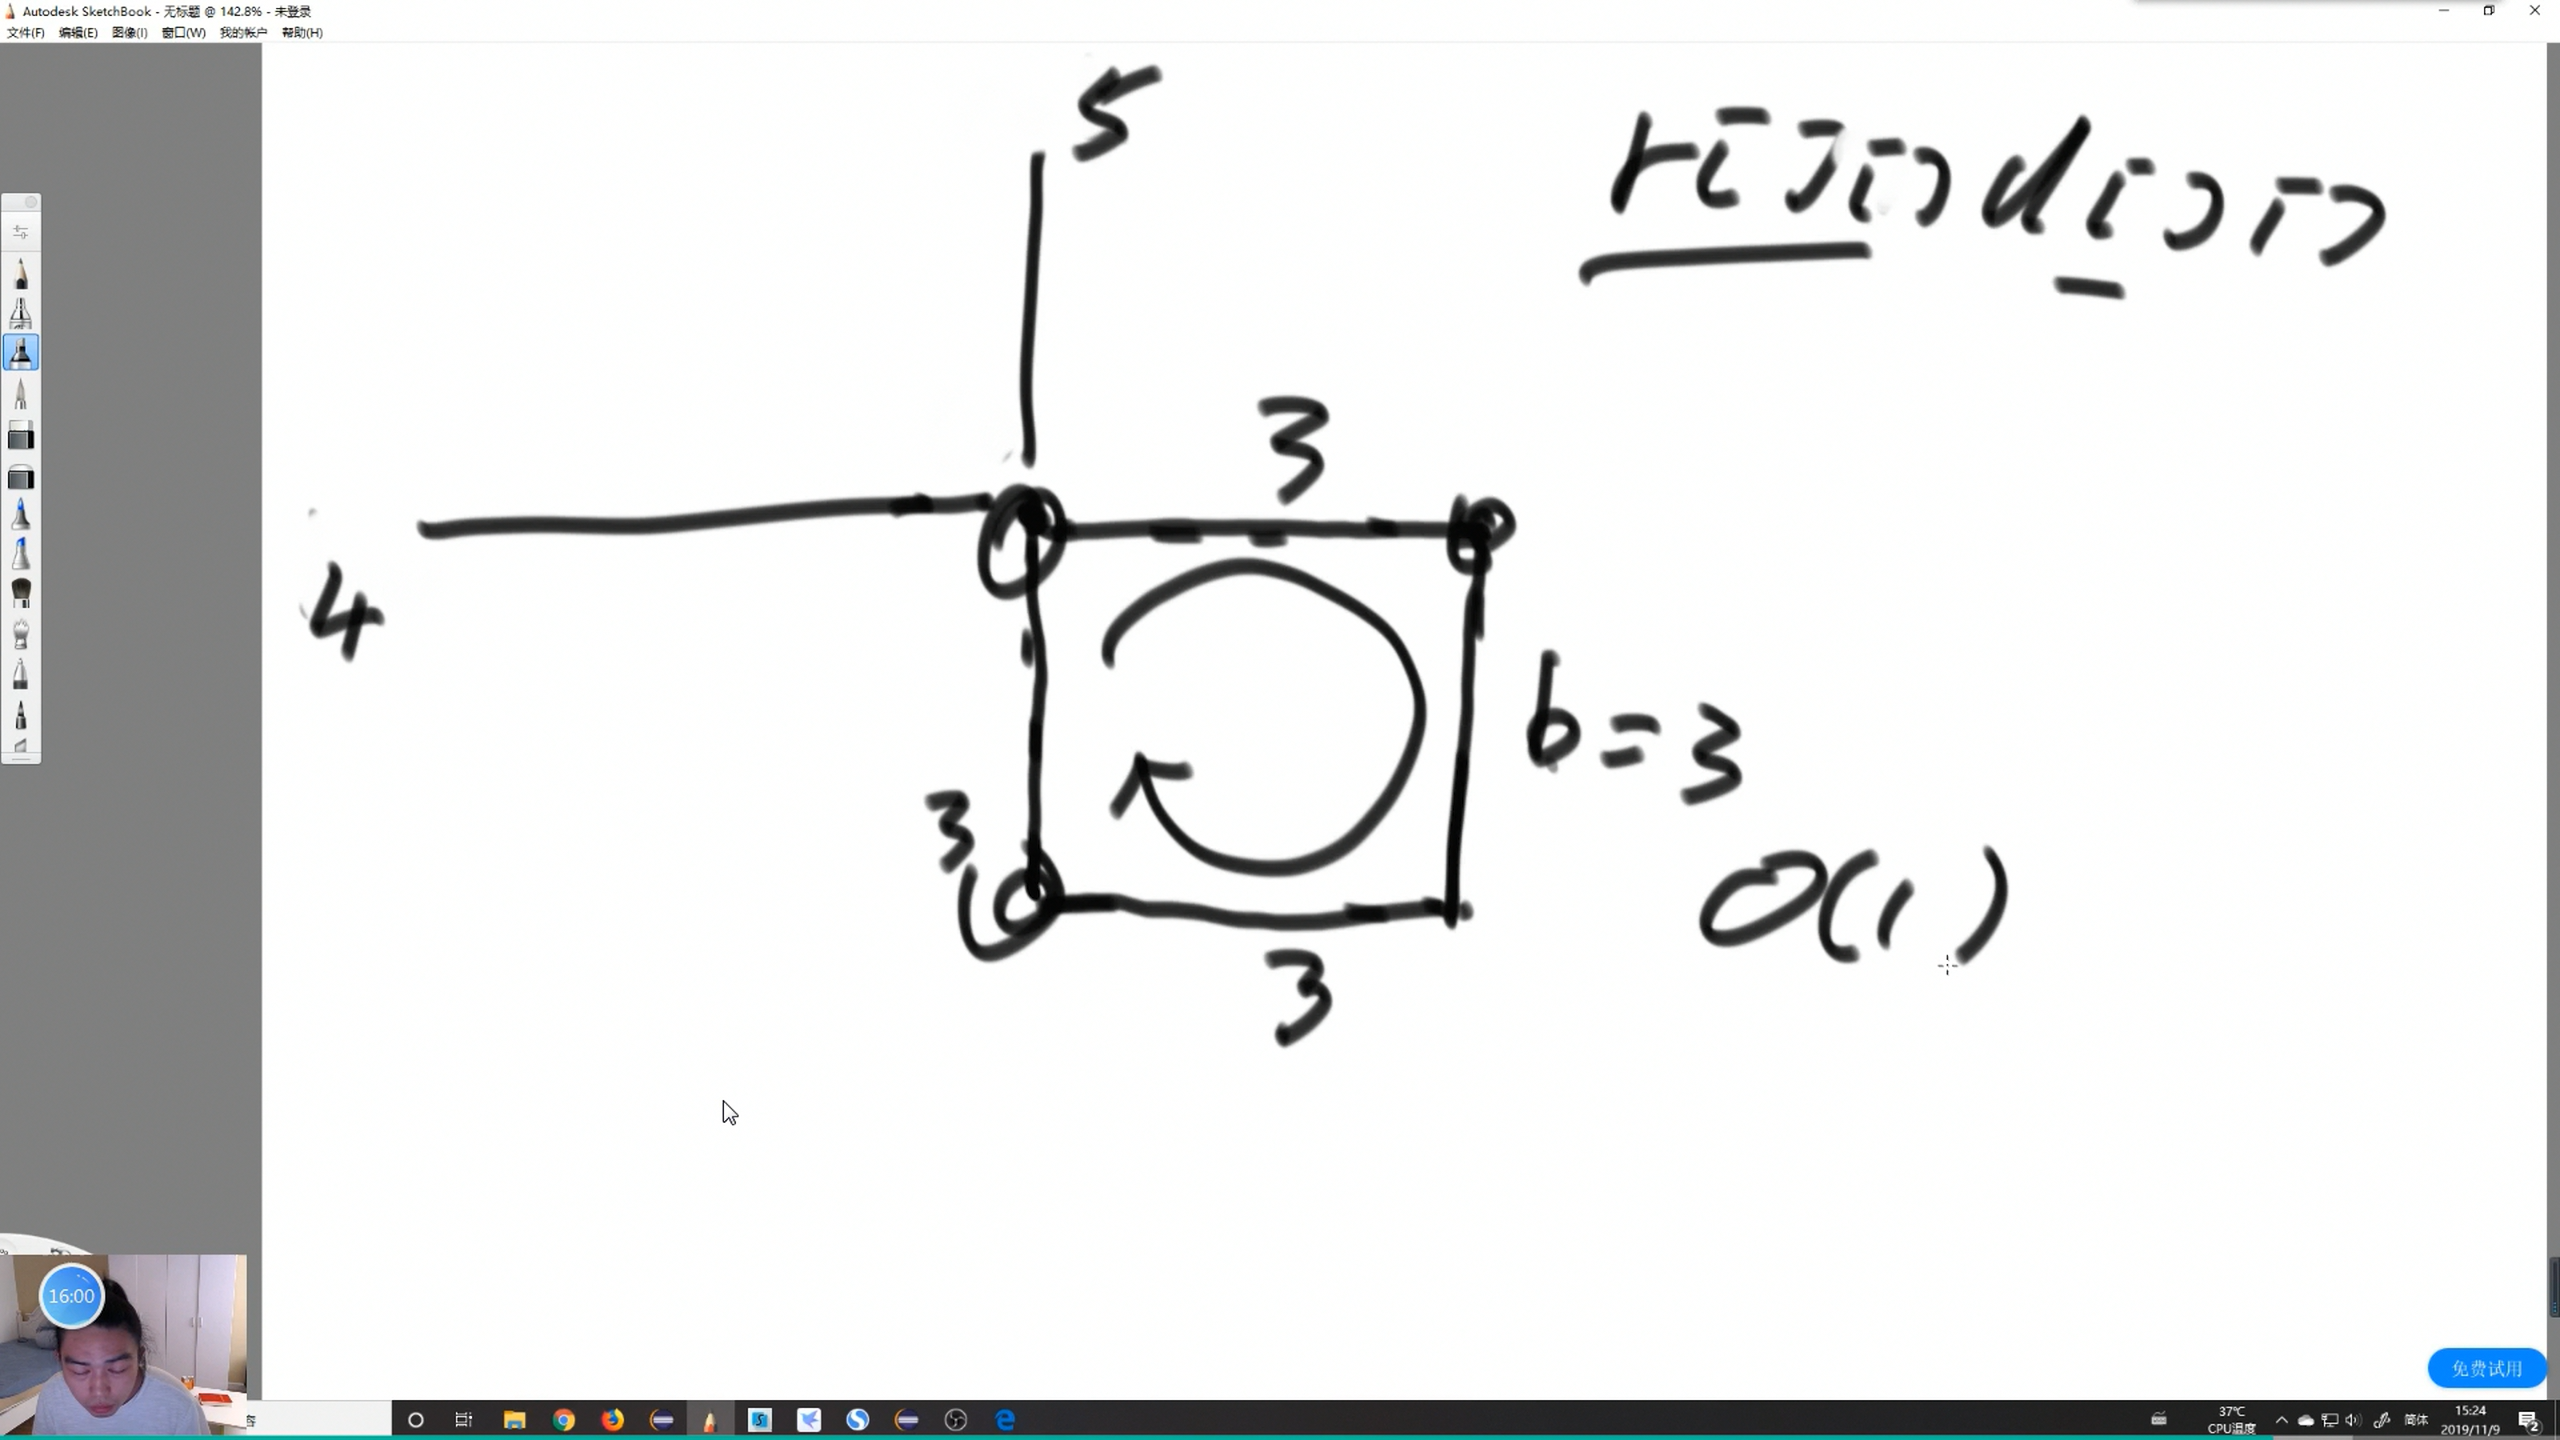 Autodesk SketchBook - 无标题 @ 142.8% - 未登录
文件(F) 编辑(E) 图像(I) 窗口(W) 我的帐户 帮助(H)
5
r[][] d[][]
3
4
b=3
3
O(1)
3
16:00
免费试用
37℃
CPU温度
简体
15:24
2019/11/9
2